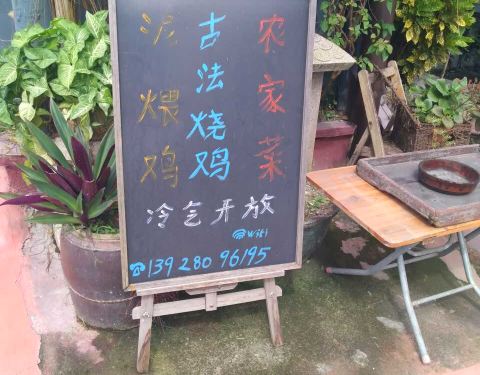 农家菜
古法烧鸡
泥煨鸡
冷气开放
WiFi
☎13928096195